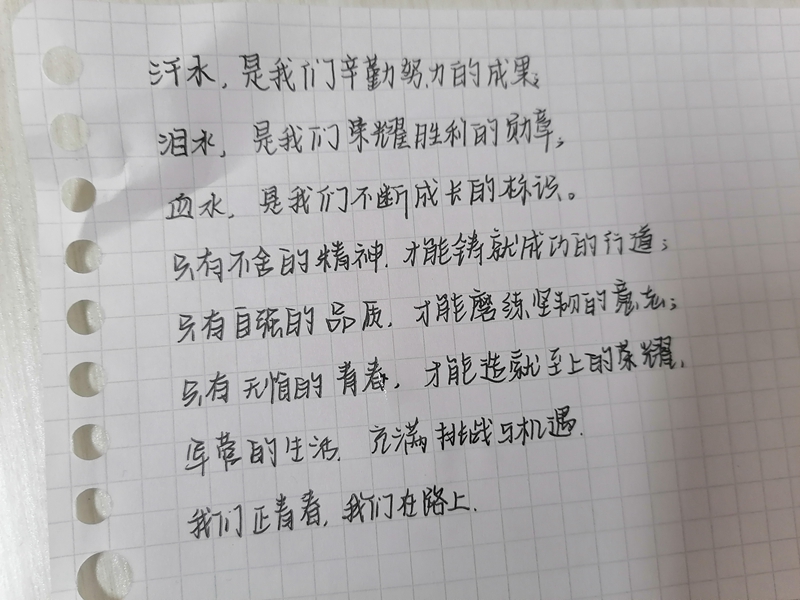 汗水，是我们辛勤努力的成果；
泪水，是我们荣耀胜利的勋章；
血水，是我们不断成长的标识。
只有不舍的精神，才能铸就成功的行道；
只有自强的品质，才能磨练坚韧的意志；
只有无惧的青春，才能造就至上的荣耀，
军营的生活，充满挑战与机遇.
我们正青春，我们在路上.